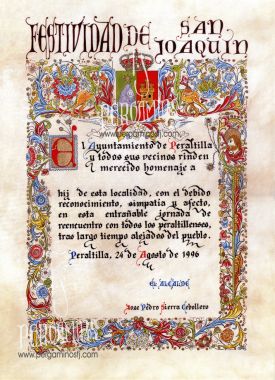 FESTIVIDAD DE SAN JOAQUIN
PERGAMINOS
www.pergaminosfj.com
El Ayuntamiento de Peraltilla
y todos sus vecinos rinden
merecido homenaje a
hij de esta localidad, con el debido
reconocimiento, simpatía y afecto,
en esta entrañable jornada de
reencuentro con todos los peraltillenses,
tras largo tiempo alejados del pueblo.
Peraltilla, 24 de Agosto de 1996
EL ALCALDE
José Pedro Sierra Cebollero
PERGAMINOS
www.pergaminosfj.com